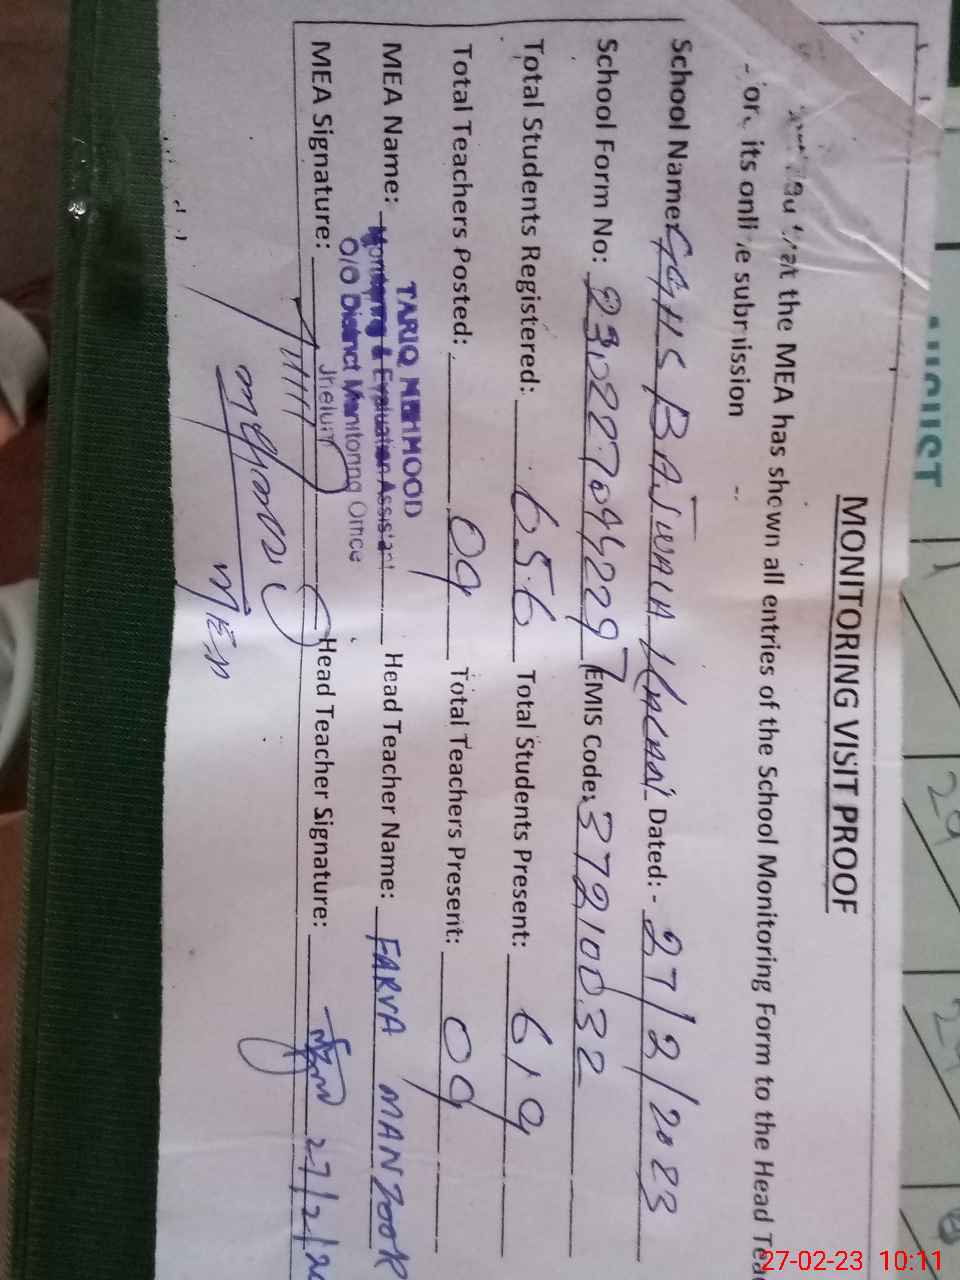 MONITORING VISIT PROOF
that the MEA has shown all entries of the School Monitoring Form to the Head Tea
its online submission
School Name: GGHS BAJWALA KACHAN Dated: - 27/2/2023
School Form No: EMIS Code: 37210032
Total Students Registered: 656 Total Students Present: 619
Total Teachers Posted: 09 Total Teachers Present: 09
TARIQ MEHMOOD
MEA Name: Monitoring & Evaluation Assistant Head Teacher Name: FARVA MANZOOR
O/O District Monitoring Office
Jhelum
MEA Signature: Head Teacher Signature: 27/2/20
AUGUST
29
27-02-23 10:11